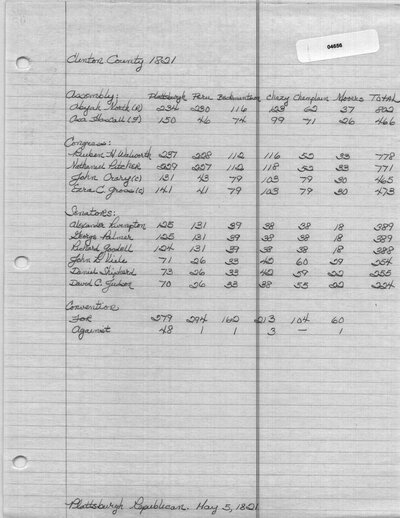 04656
Clinton County 1821
Assembly: Plattsburgh Peru Beekmantown Chazy Champlain Mooers TOTAL
Abijah North (R) 234 230 116 123 62 37 802
Asa Hascall (F) 150 46 74 99 71 26 466
Congress:
Reuben H Walworth 237 228 112 116 52 33 778
Nathaniel Pitcher 229 227 112 118 52 33 771
John Crary (c) 131 43 79 103 79 30 465
Ezra C. Gross (c) 141 41 79 103 79 30 473
Senators:
Alexander Livingston 125 131 39 38 38 18 389
George Palmer 125 131 39 38 38 18 389
Richard Goodell 124 131 39 38 38 18 388
John L Viele 71 26 33 42 60 254
Daniel Shipherd 73 26 33 42 59 22 255
David C. Judson 70 26 33 38 55 22 224
Convention
For 279 294 162 213 104 60
Against 48 1 1 3 — 1
Plattsburgh Republican. May 5, 1821